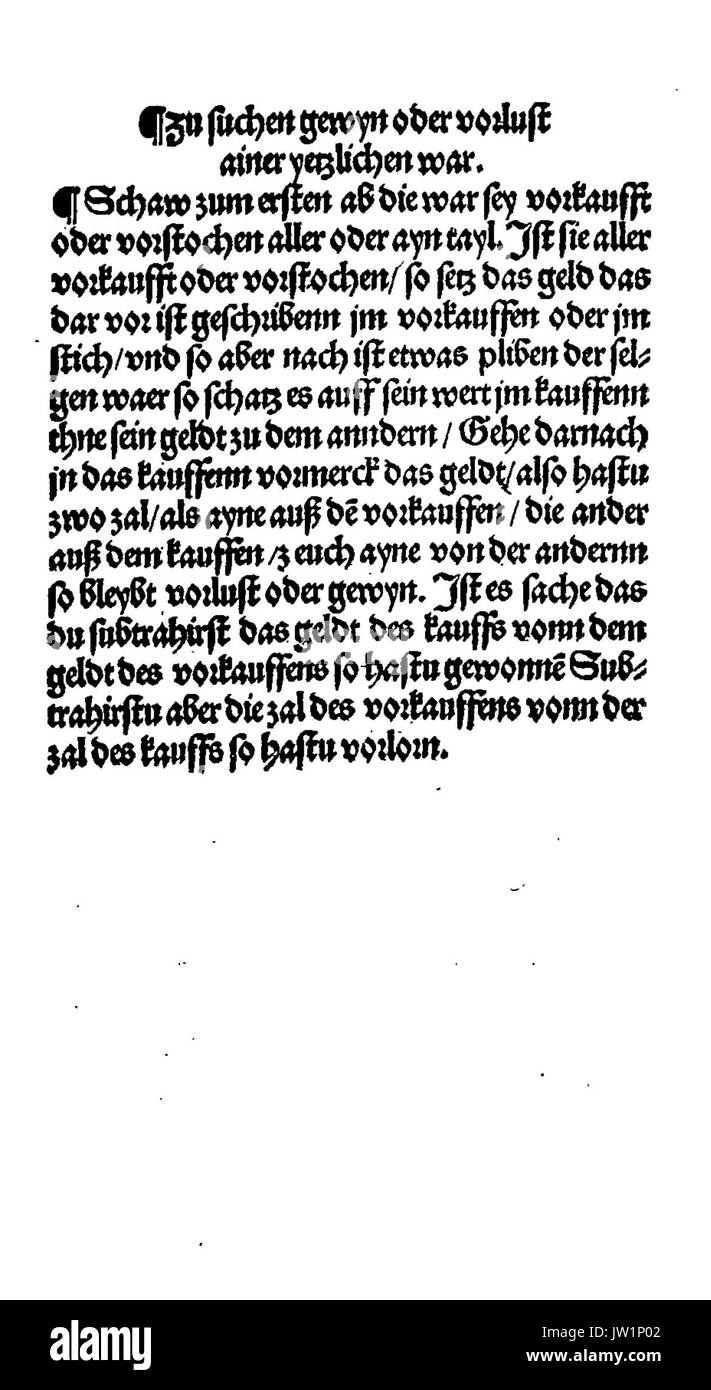 ¶Zu suchen gewyn oder vorlust
ainer yetzlichen war.
¶ Schaw zum ersten ab die war sey vorkaufft
oder vorstochen aller oder ayn tayl. Ist sie aller
vorkaufft oder vorstochen/ so setz das geld das
dar vor ist geschribenn jm vorkauffen oder jm
stich/vnd so aber nach ist etwas pliben der sel⸗
gen waer so schatz es auff sein wert jm kauffenn
thne sein geldt zu dem anndern/ Gehe darnach
jn das kauffenn vormerck das geldt/also hastu
zwo zal/als ayne auß dē vorkauffen/ die ander
auß dem kauffen/zeuch ayne von der andernn
so bleybt vorlust oder gewyn. Ist es sache das
du subtrahirst das geldt des kauffs vonn dem
geldt des vorkauffens so hastu gewonnē Sub⸗
trahirstu aber die zal des vorkauffens vonn der
zal des kauffs so hastu vorlorn.
alamy
alamy stock photo
JW1P02
www.alamy.com